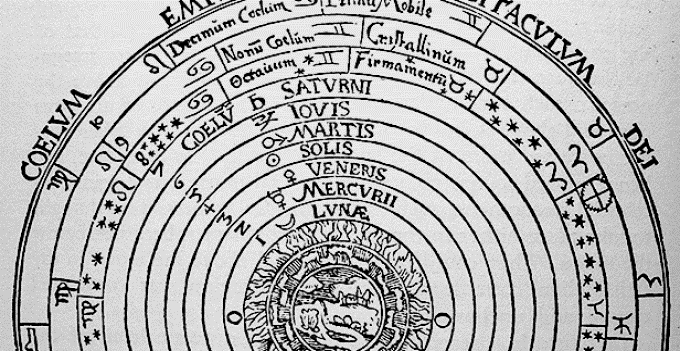 COELVM
DEI
Decimum Coelum
Mobile
Nonũ Coelum
Cristallinũm
Octauum
Firmamentũ
COELV̄
SATVRNI
IOVIS
MARTIS
SOLIS
VENERIS
MERCVRII
LVNÆ
♄
☉
♀
☿
☽
8
7
6
5
4
3
2
1